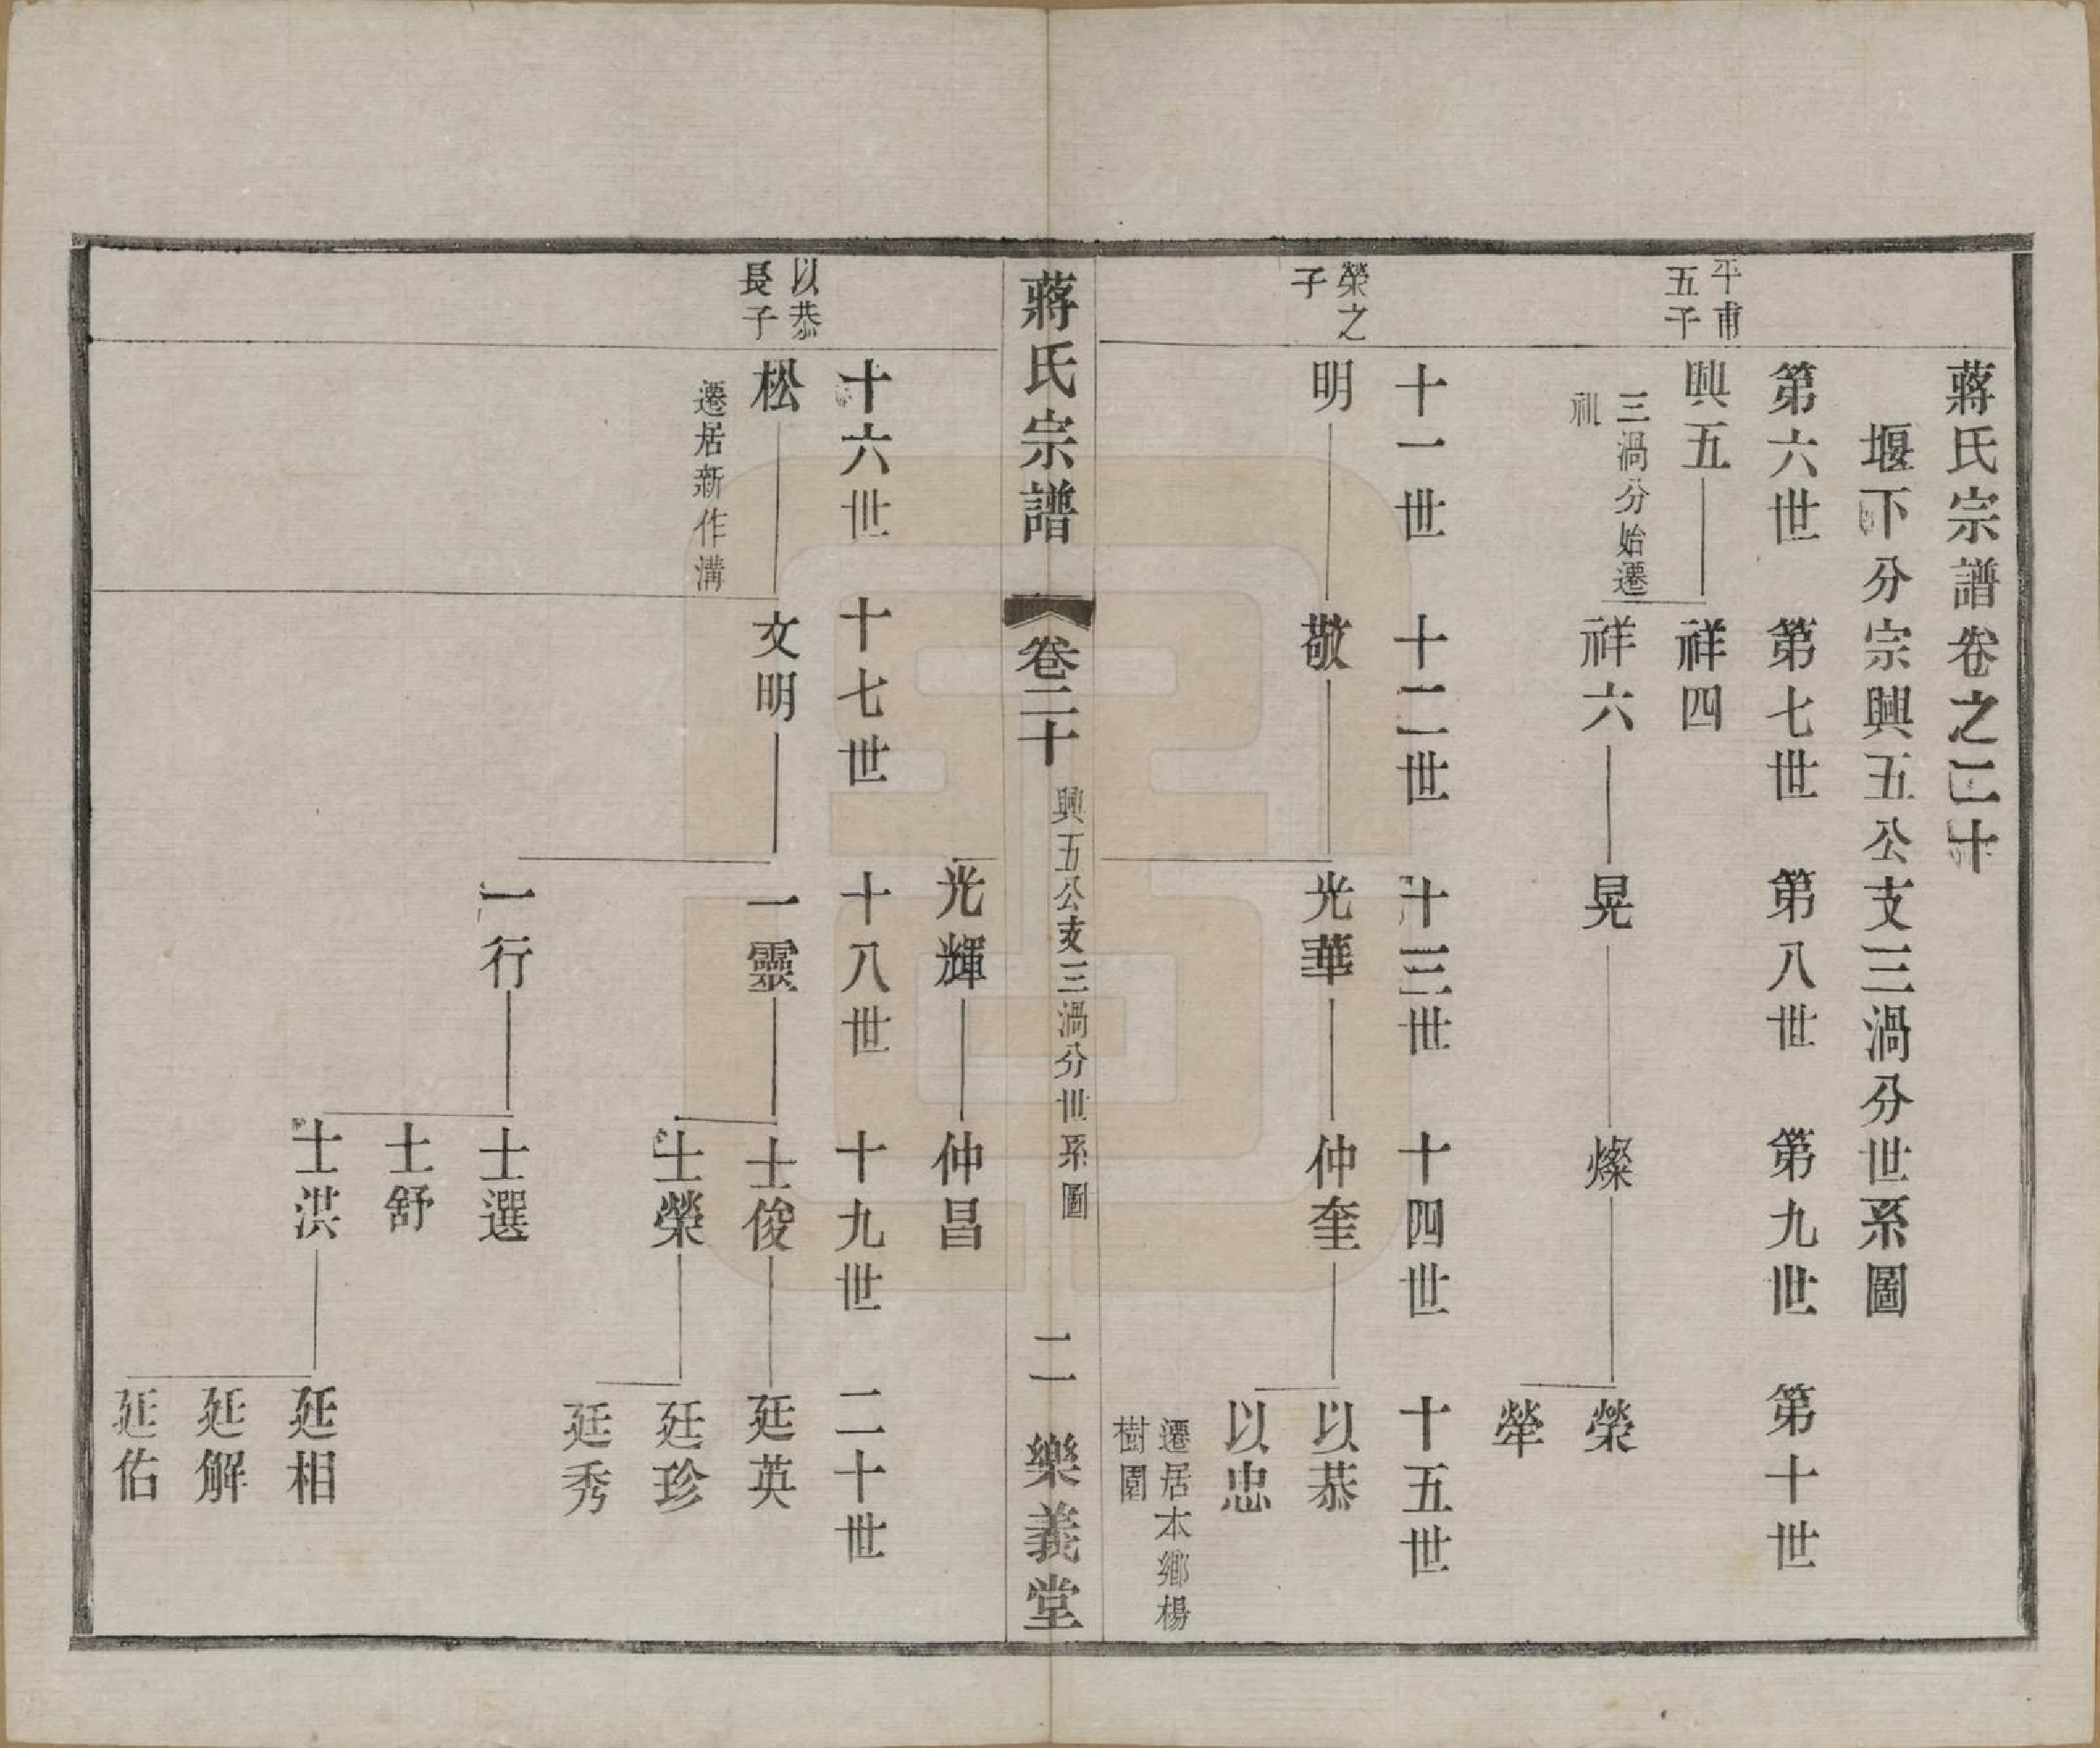 蔣氏宗譜卷之二十
堰下分宗興五公支三渦分世系圖
第六世　第七世　第八世　第九世　第十世
平甫
五子
興五
祥四
三渦分始遷
祖
祥六
晃
燦
榮
犖
十一世　十二世　十三世　十四世　十五世
榮之
子
明
敬
光華
仲奎
以恭
以忠
遷居本鄉楊
樹園
蔣氏宗譜　卷二十　興五公支三渦分世系圖　二　樂義堂
光輝
仲昌
十六世　十七世　十八世　十九世　二十世
以恭
長子
松
文明
一靈
士俊
廷英
遷居新作溝
士榮
廷珍
廷秀
一行
士選
士舒
士洪
廷相
廷解
廷佑